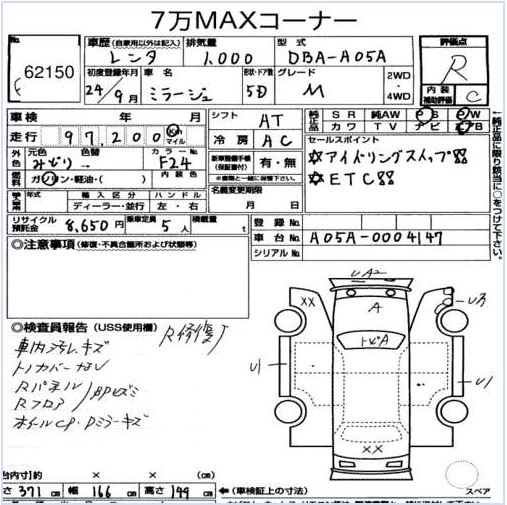 7万MAXコーナー
62150
車歴 (自家用以外は記入) 排気量 型式
レンタ 1,000 DBA-A05A
初度登録年月 車名 形状・ドア数 グレード 2WD・4WD
24年9月 ミラージュ 5D M
評価点
R
内装補助評価 C
車検 年 月
シフト AT
純正品 SR 純AW PS PW
カワ TV ナビ エアB
走行 97,200 Km マイル
冷房 AC
セールスポイント
☆アイドリングストップ!!
☆ETC!!
外色 元色 みどり→ 色替 カラーNo. F24
新車整備手帳(保証書付) 有・無
燃料 ガソリン・軽油・( ) 内装色
名義変更期限 月 日
輸入車 年式 輸入区分 ハンドル
ディーラー・並行 左・右
リサイクル預託金 8,650円 乗車定員 5人 積載量 t
登録No.
車台No. A05A-0004147
シリアルNo.
←純正品に限り該当に○をつけて下さい。
◎注意事項(修復・不具合箇所および状態等)
◎検査員報告(USS使用欄)
R修復T
車内汚レ、キズ
トノカバーなし
Rパネル
Rフロア
ホイルCP・Dミラーキズ
UA2
XX
A
U3
トビA
U1
U1
XX
スペア
台内寸(約 × × cm)
さ 371 cm 幅 166 cm 高さ 149 cm ←(車検証上の寸法)